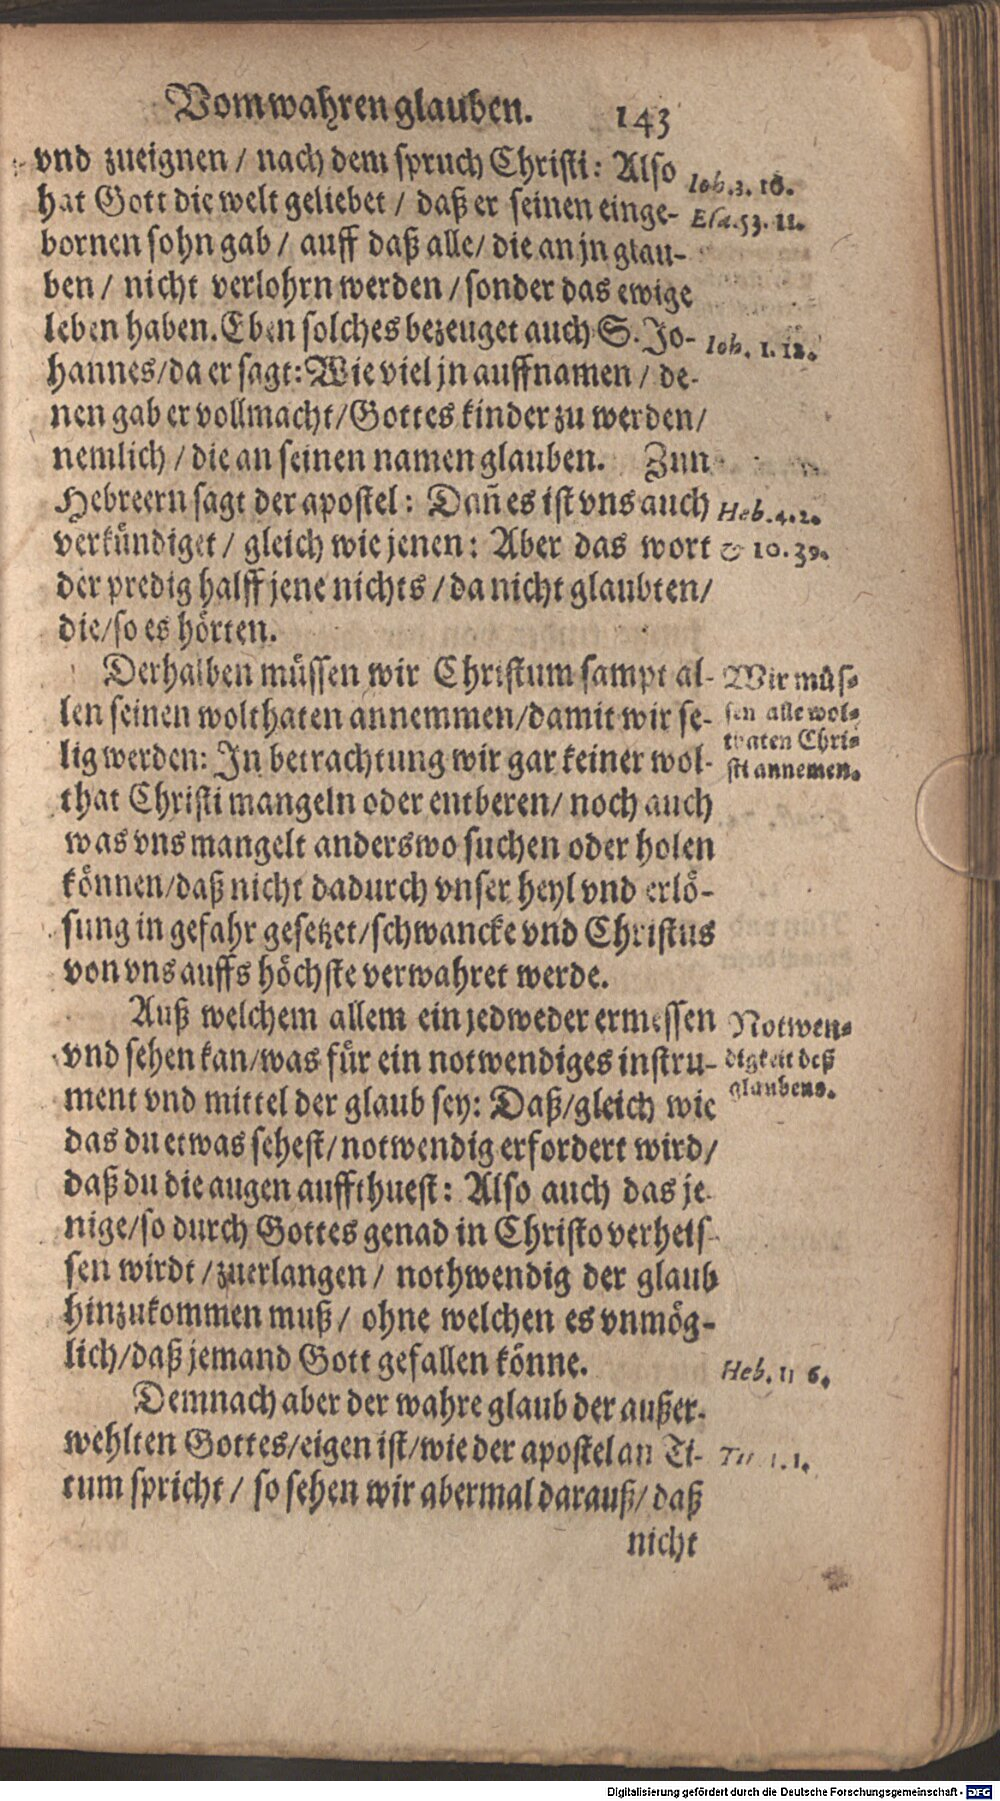 Vom wahren glauben. 143
vnd zueignen / nach dem spruch Christi: Also
hat Gott die welt geliebet / daß er seinen einge-
bornen sohn gab / auff daß alle / die an jn glau-
ben / nicht verlohrn werden / sonder das ewige
leben haben. Eben solches bezeuget auch S. Jo-
hannes / da er sagt: Wie viel jn auffnamen / de-
nen gab er vollmacht / Gottes kinder zu werden /
nemlich / die an seinen namen glauben. Zun
Hebreern sagt der apostel: Dañ es ist vns auch
verkündiget / gleich wie jenen: Aber das wort
der predig halff jene nichts / da nicht glaubten /
die / so es hörten.
Ioh. 3. 16.
Esa. 53. 11.
Ioh. 1. 12.
Heb. 4. 2.
& 10. 39.
Derhalben müssen wir Christum sampt al-
len seinen wolthaten annemmen / damit wir se-
lig werden: In betrachtung wir gar keiner wol-
that Christi mangeln oder entberen / noch auch
was vns mangelt anderswo suchen oder holen
können / daß nicht dadurch vnser heyl vnd erlö-
sung in gefahr gesetzet / schwancke vnd Christus
von vns auffs höchste verwahret werde.
Wir müs-
sen alle wol-
thaten Chri-
sti annemen.
Auß welchem allem ein jedweder ermessen
vnd sehen kan / was für ein notwendiges instru-
ment vnd mittel der glaub sey: Daß / gleich wie
das du etwas sehest / notwendig erfordert wird /
daß du die augen auffthuest: Also auch das je-
nige / so durch Gottes genad in Christo verheis-
sen wirdt / zuerlangen / nothwendig der glaub
hinzukommen muß / ohne welchen es vnmög-
lich / daß jemand Gott gefallen könne.
Notwen-
digkeit deß
glaubens.
Heb. 11 6.
Demnach aber der wahre glaub der außer-
wehlten Gottes / eigen ist / wie der apostel an Ti-
tum spricht / so sehen wir abermal darauß / daß
Tit. 1. 1.
nicht
Digitalisierung gefördert durch die Deutsche Forschungsgemeinschaft - DFG